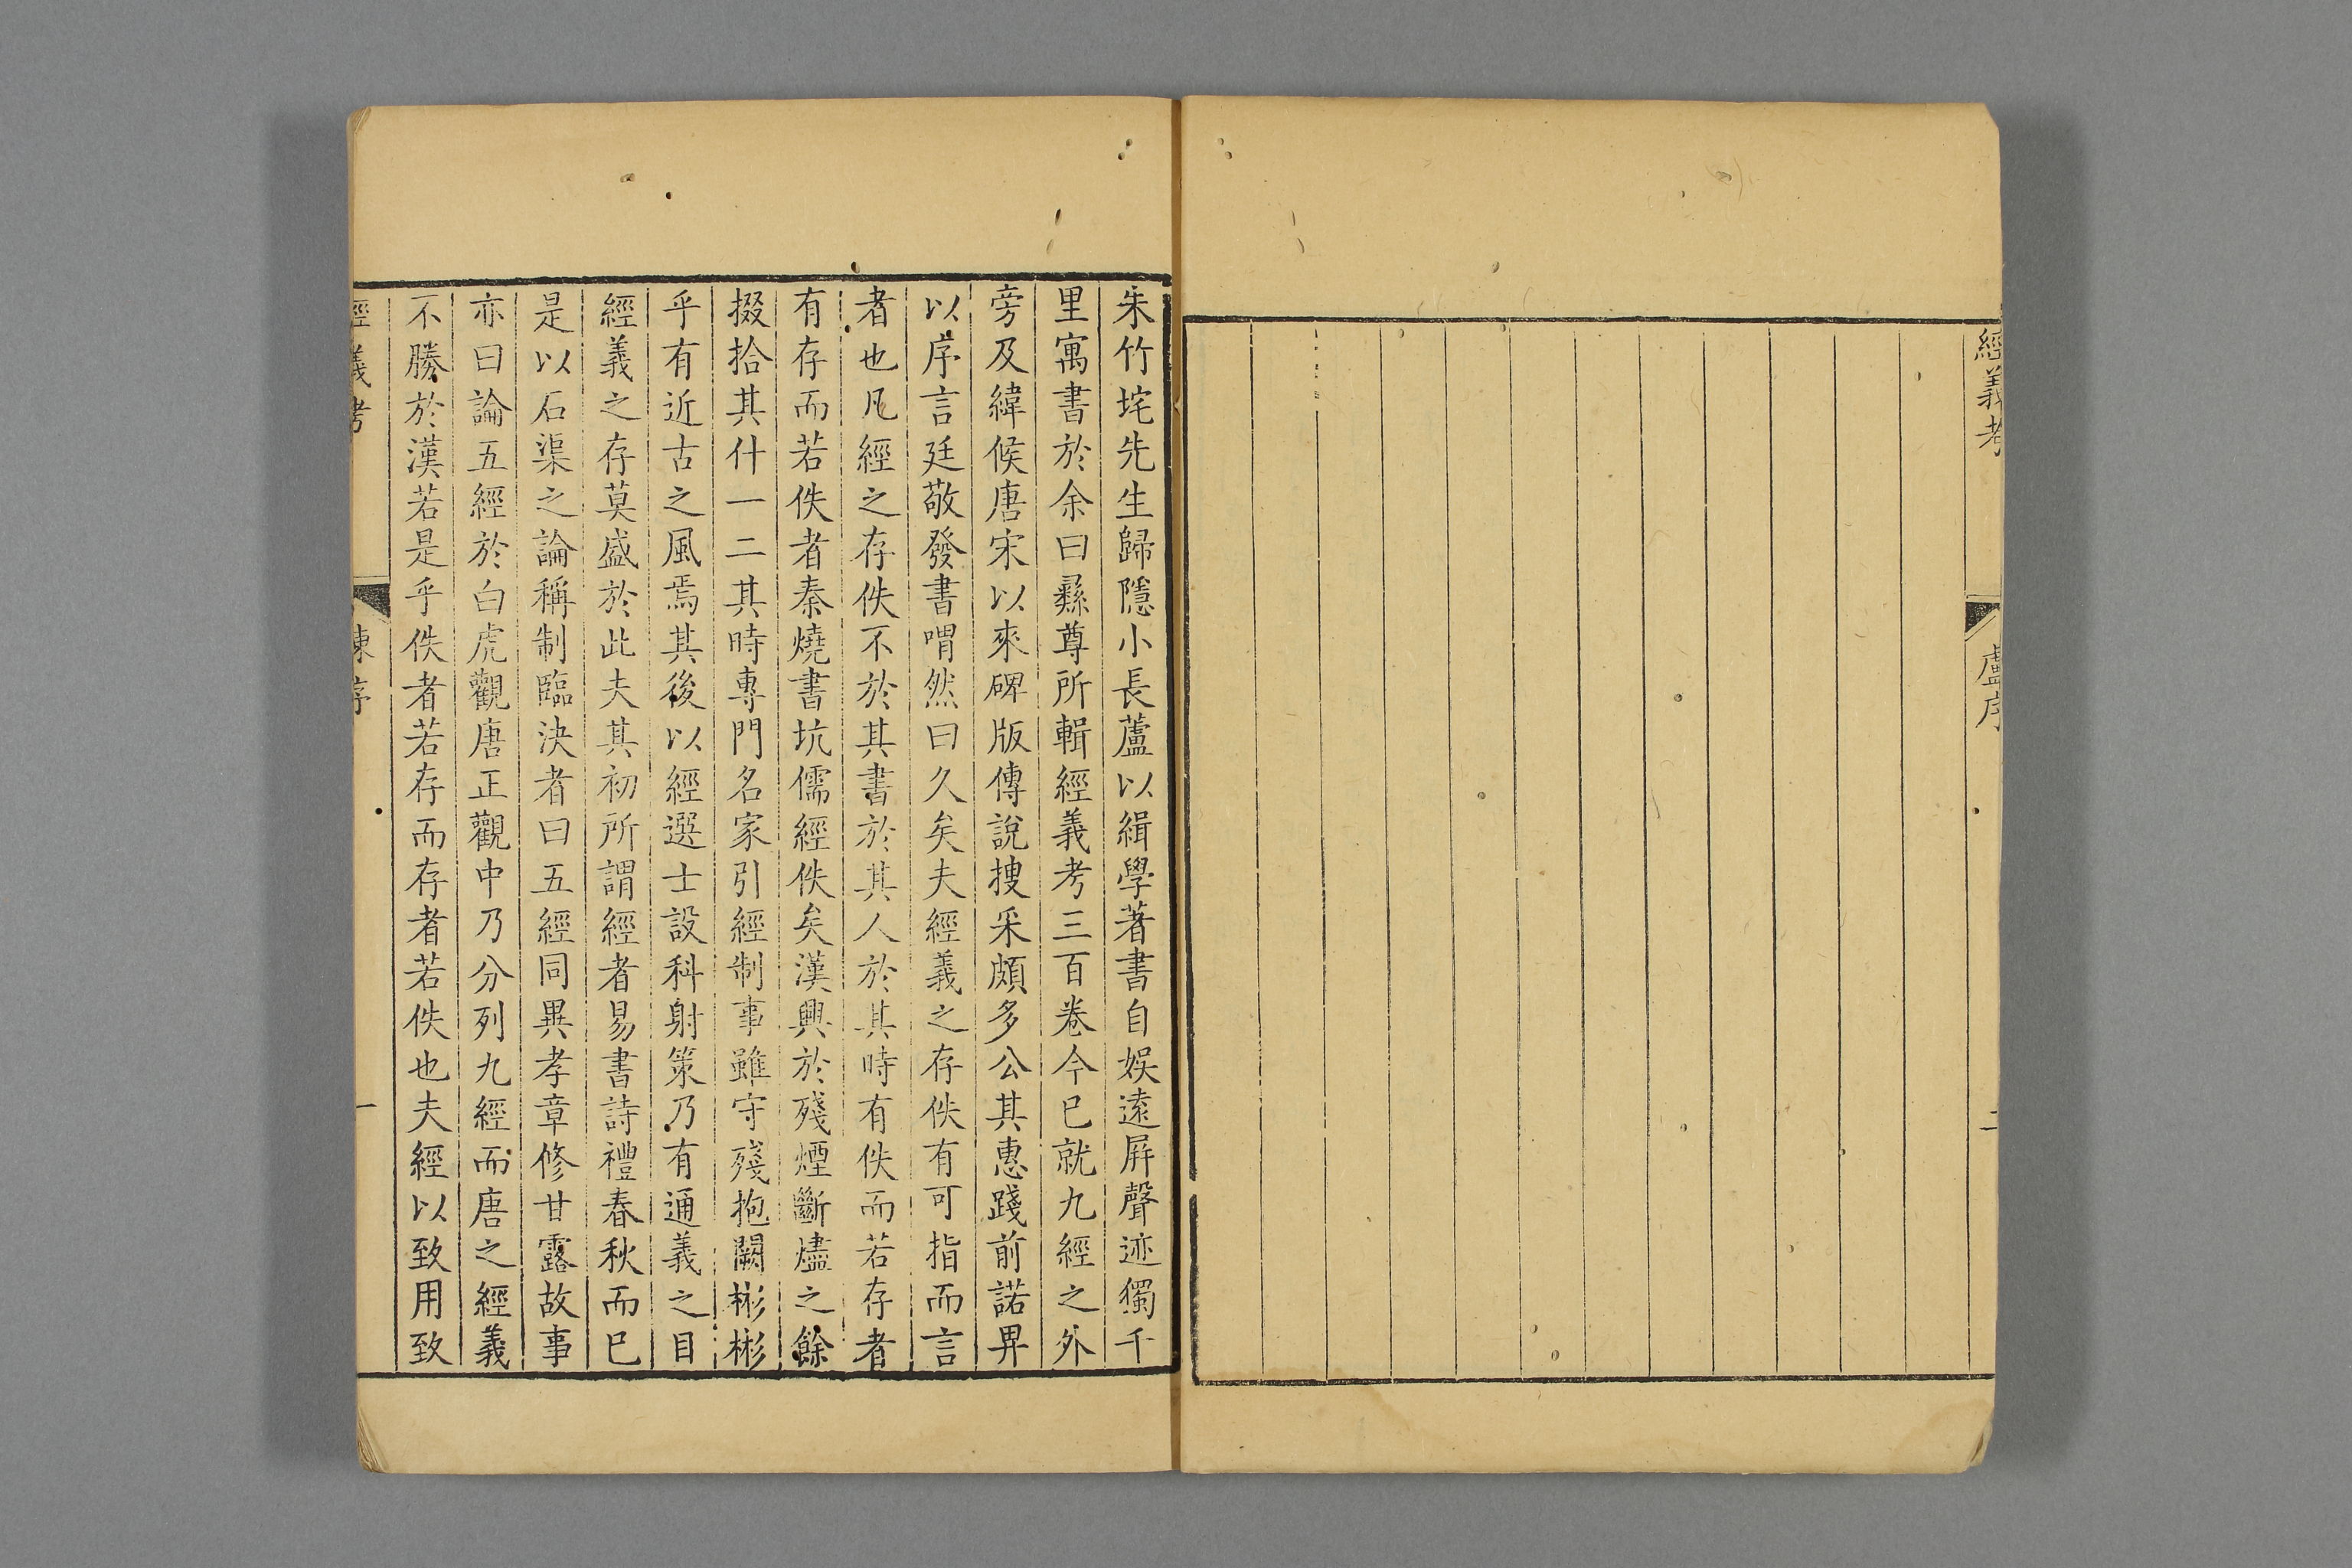 經義考
盧序
二
朱竹垞先生歸隱小長蘆以緝學著書自娛遠屏聲迹獨千
里寓書於余曰彝尊所輯經義考三百卷今已就九經之外
旁及緯候唐宋以來碑版傳說搜采頗多公其惠踐前諾畀
以序言廷敬發書喟然曰久矣夫經義之存佚有可指而言
者也凡經之存佚不於其書於其人於其時有佚而若存者
有存而若佚者秦燒書坑儒經佚矣漢興於殘煙斷燼之餘
掇拾其什一二其時專門名家引經制事雖守殘抱闕彬彬
乎有近古之風焉其後以經選士設科射策乃有通義之目
經義之存莫盛於此夫其初所謂經者易書詩禮春秋而已
是以石渠之論稱制臨決者曰五經同異孝章修甘露故事
亦曰論五經於白虎觀唐正觀中乃分列九經而唐之經義
不勝於漢若是乎佚者若存而存者若佚也夫經以致用致
經義考
陳序
一